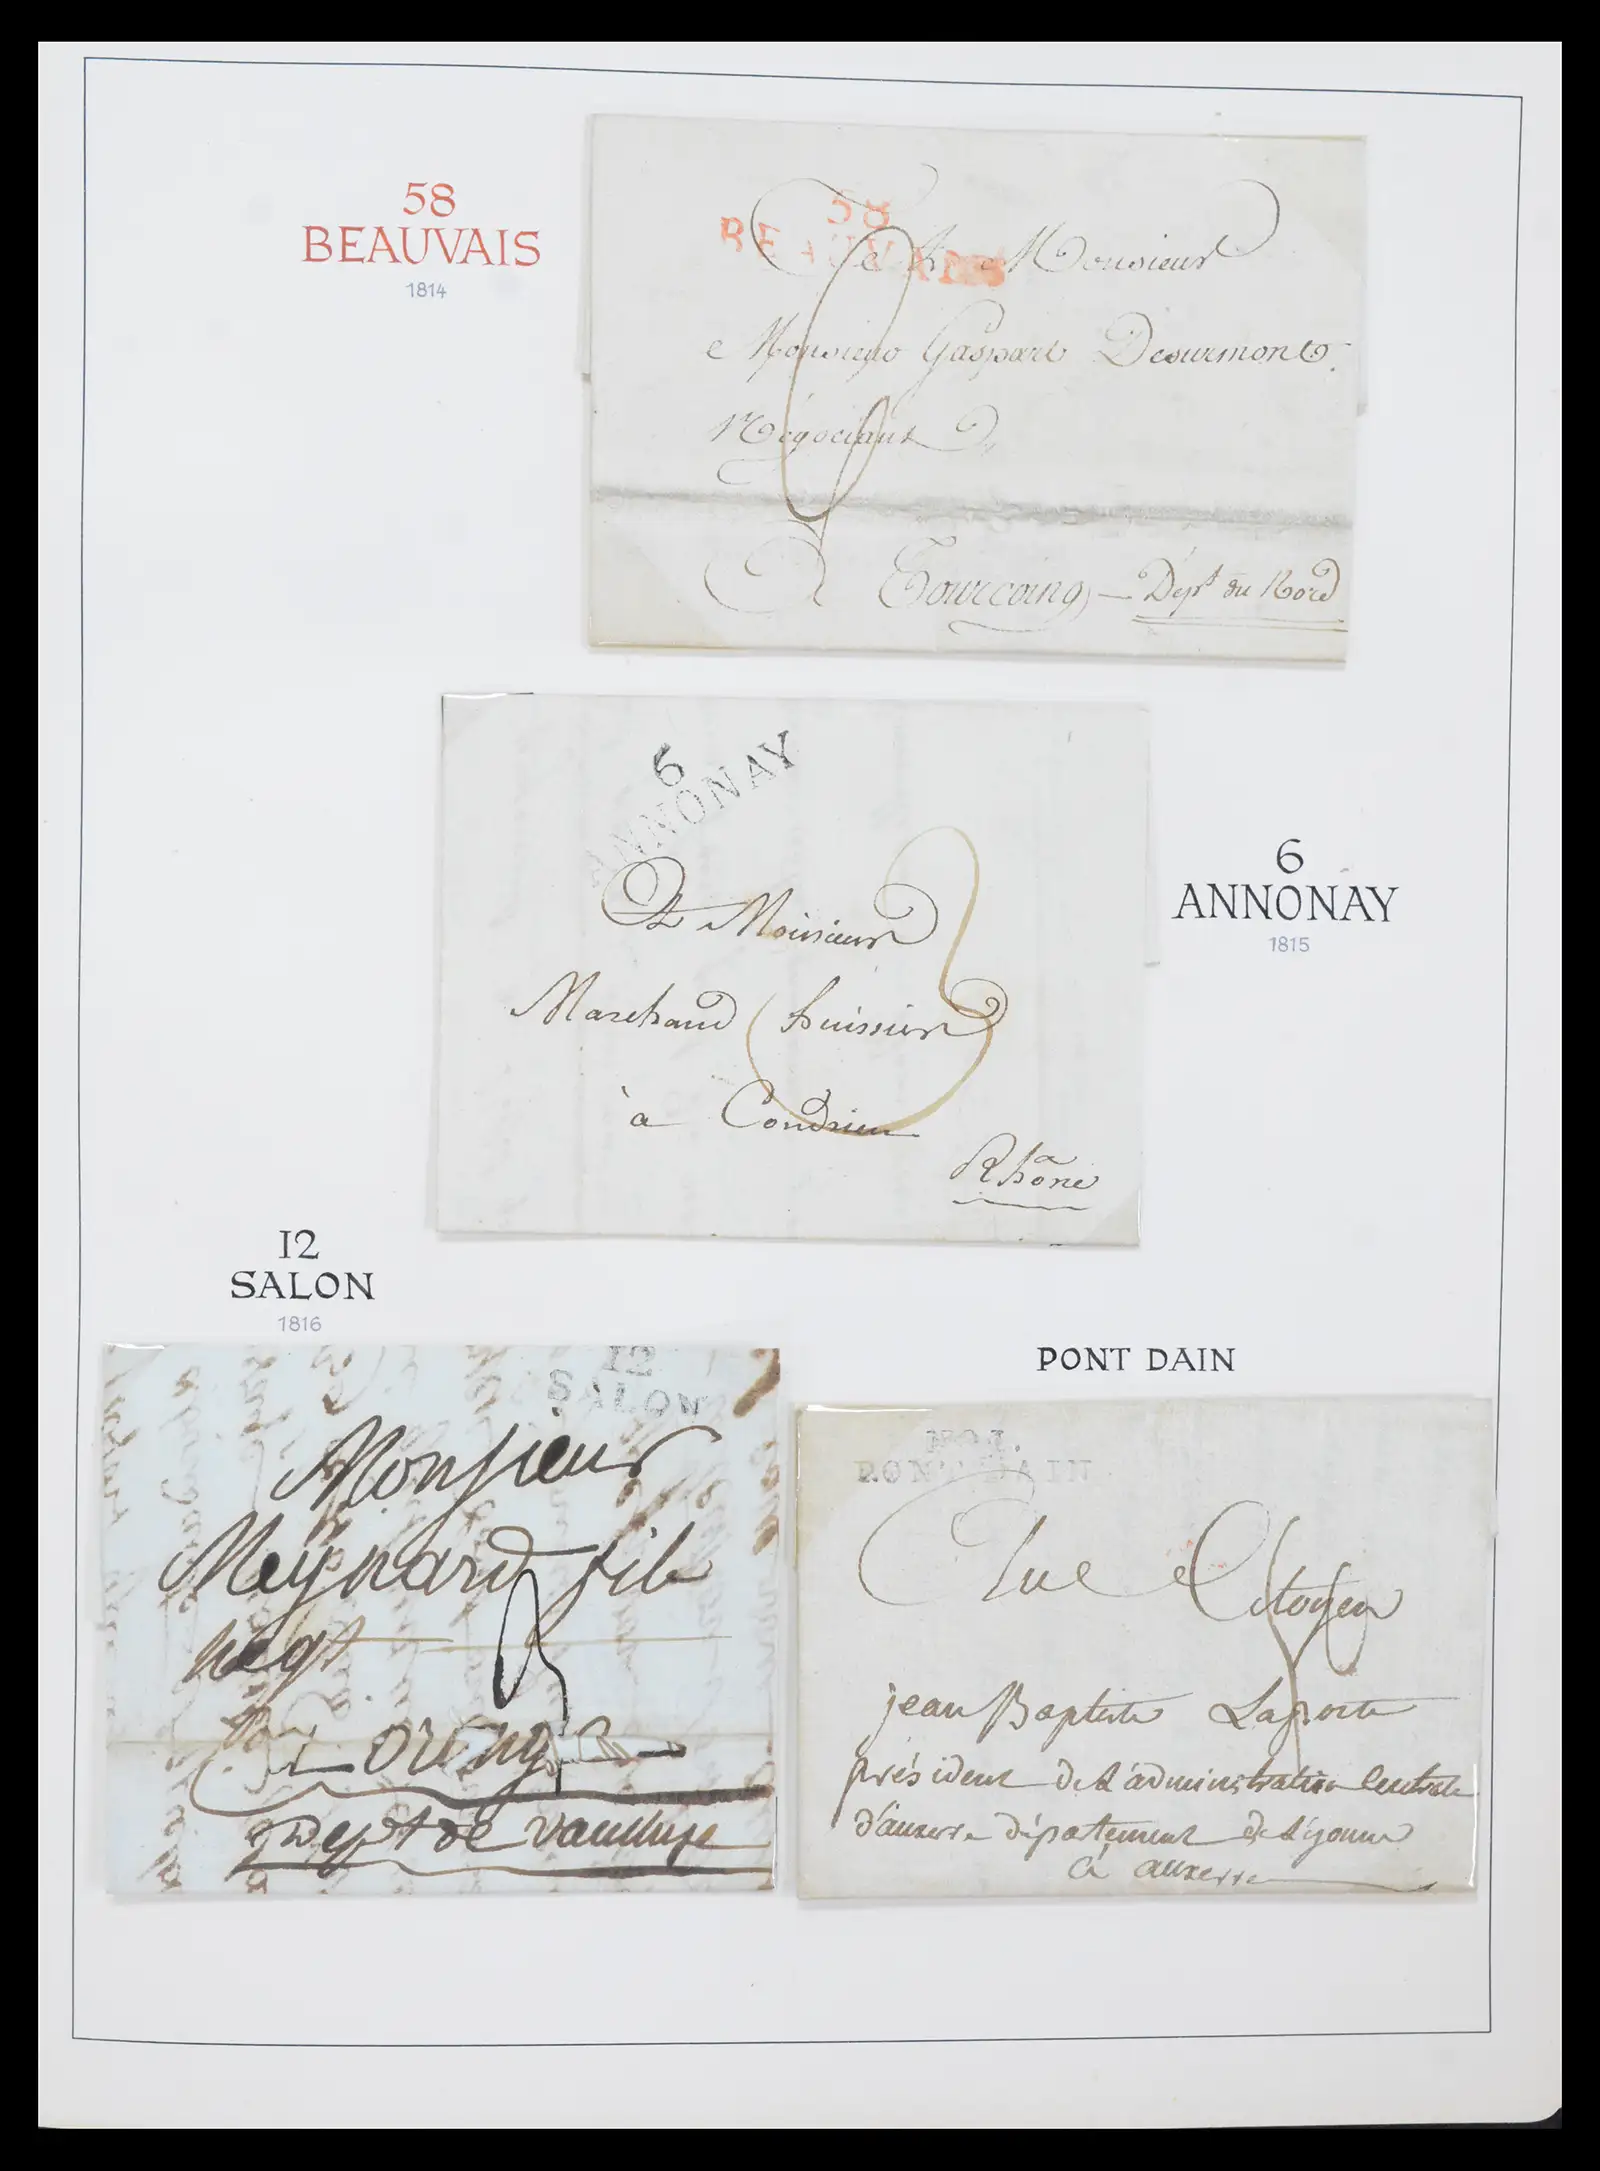 58
BEAUVAIS
1814
58
BEAUVAIS
A Monsieur
Monsieur Gaspart Desurmont
Négociant
A Tourcoing – Dépt. du Nord
6
ANNONAY
A Monsieur
Marchand huissier
à Condrieu
Rhône
6
ANNONAY
1815
12
SALON
1816
12
SALON
Monsieur
Meynard fils
negt
Dept de Vaucluse
PONT DAIN
No 1.
PONT DAIN
Citoyen
jean Baptiste Laporte
président de L'administration Centrale
d'auxerre département de L'yonne
à auxerre